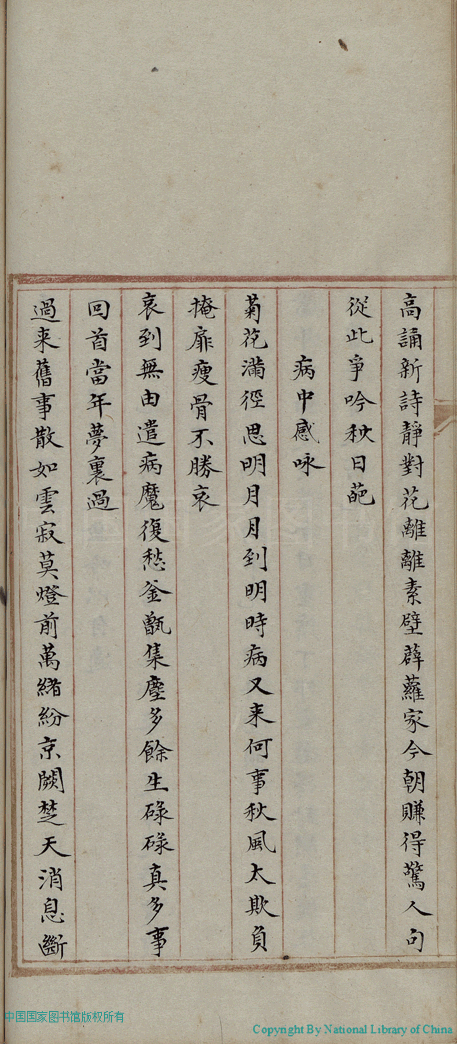 高誦新詩靜對花離離素壁薜蘿家今朝賺得驚人句
從此爭吟秋日葩
病中感咏
菊花滿徑思明月月到明時病又来何事秋風太欺負
掩扉瘦骨不勝哀
哀到無由遣病魔復愁釜甑集塵多餘生碌碌真多事
回首當年夢裏過
過来舊事散如雲寂莫燈前萬緒紛京闕楚天消息斷
中国国家图书馆版权所有
Copyright By National Library of China